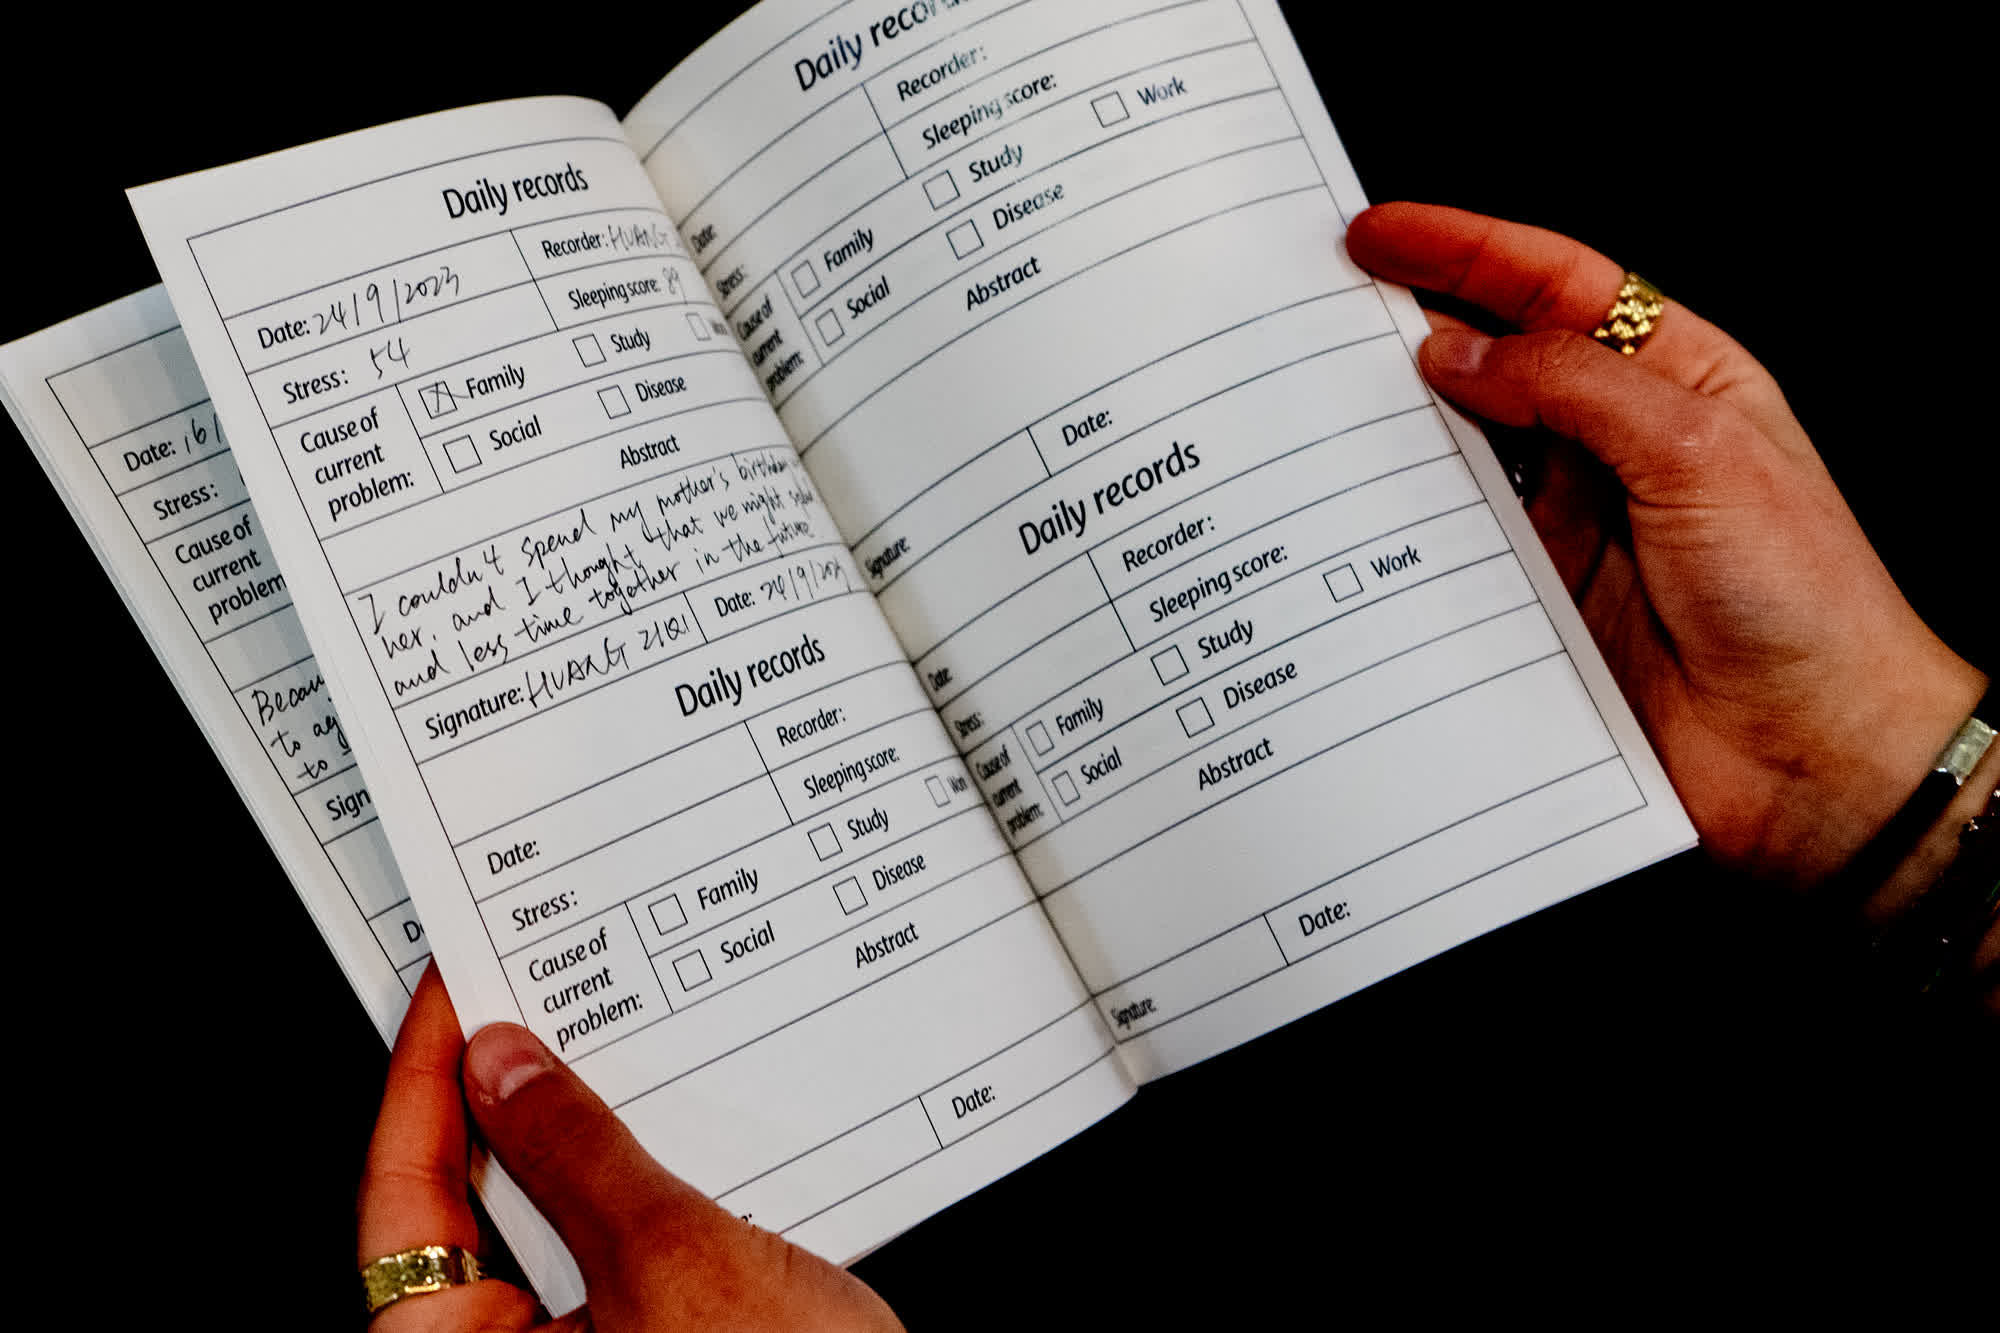 Daily records
Recorder: HUANG
Date: 24/9/2023
Sleeping score: 89
Stress: 54
Cause of current problem:
Family
Study
Social
Disease
Abstract
I couldn't spend my mother's birthday
her, and I thought that we might
and less time together in the future
Signature: HUANG
Date: 24/9/2023
Daily records
Recorder:
Date:
Sleeping score:
Stress:
Cause of current problem:
Family
Study
Social
Disease
Abstract
Date:
Date: 16/
Stress:
Cause of
current
problem
to
Sign
Daily
Recorder:
Date:
Sleeping score:
Stress:
Cause of current problem:
Family
Study
Work
Social
Disease
Abstract
Signature:
Date:
Daily records
Recorder:
Date:
Sleeping score:
Stress:
Cause of current problem:
Family
Study
Work
Social
Disease
Abstract
Signature:
Date: